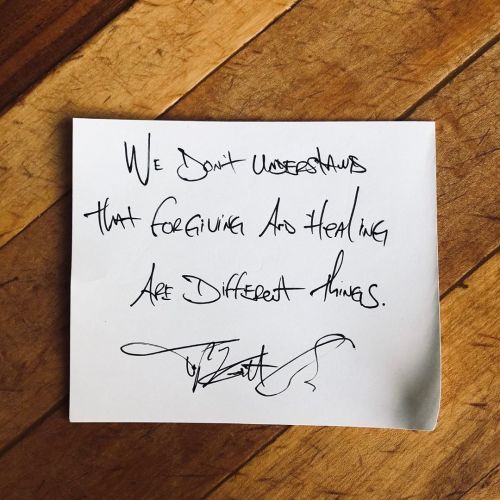 We Don't Understand
that forgiving And Healing
Are Different things.